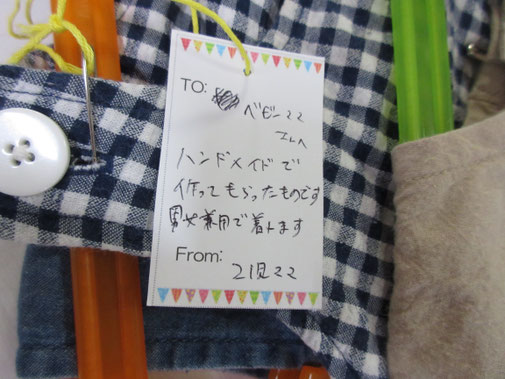 TO: ベビーママ
さんへ
ハンドメイドで
作ってもらったものです
男女兼用で着れます
From:
2児ママ